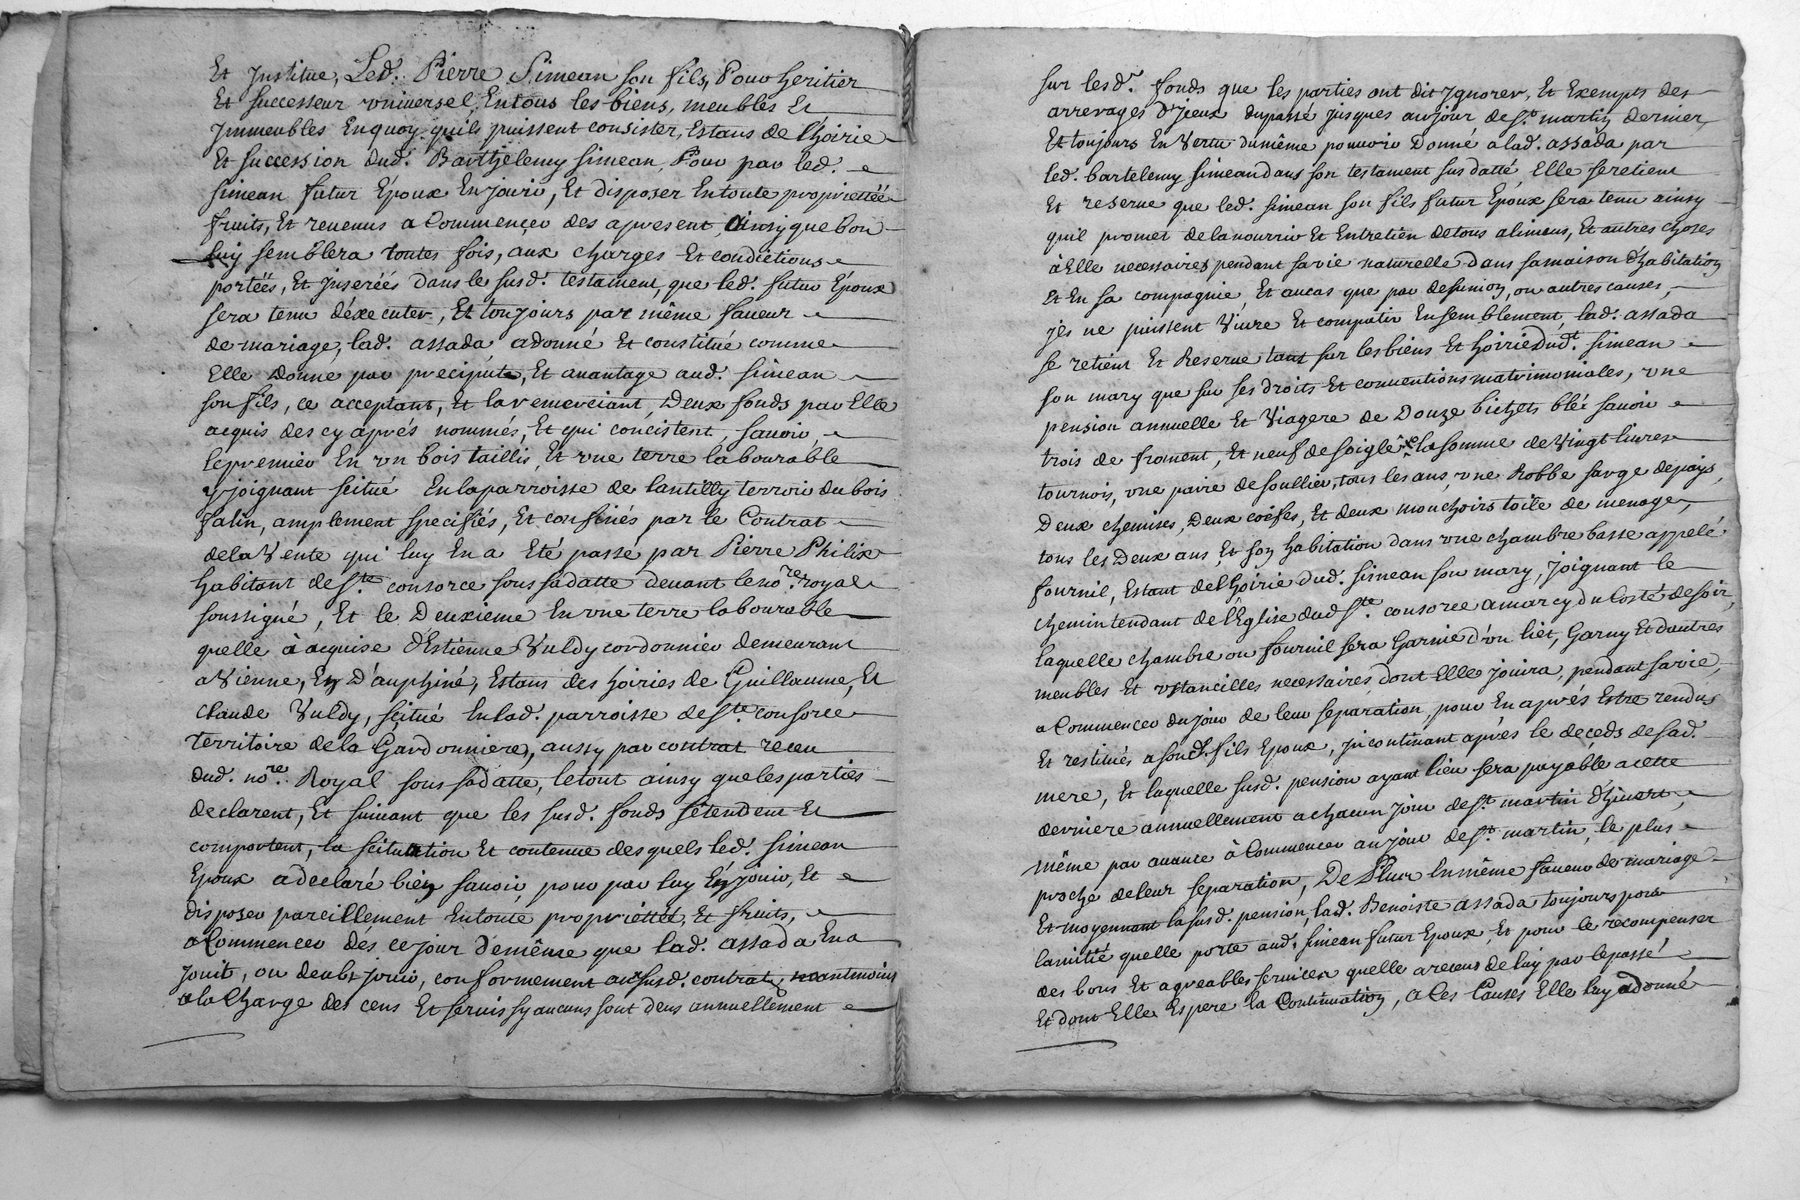 Et Institue, Led. Pierre Simean son fils, Pour heritier
Et successeur vniversel, En tous les biens, meubles Et
Immeubles En quoy quils puissent consister, Estans de lhoirie
Et succession dud. Barthelemy simean, Pour par led.
simean futur Epoux En jouir, Et disposer En toute propriettéé
fruits, Et revenus a Commencer des apresent, ainsy que bon
luy semblera toutes fois, aux charges Et condictions
portéés, Et Inseréés Dans le susd. testament, que led. futur Epoux
sera tenu déxecuter, Et toujours par même faueur
de mariage, lad. assada adonné Et constitué comme
Elle Donne par preciput, Et auantage aud. simean
son fils, ce acceptant, Et la remerciant, Deux fonds par Elle
acquis des cy aprés nommés, Et qui concistent, sauoir,
le premier En vn bois taillis, Et vne terre labourable
y joignant scitué En la parroisse de lantilly terroir du bois
falin, amplement specifiés, Et confinés par le Contrat
de la Vente qui luy En a Eté passé par Pierre Philix
habitant de Ste. consorce sous sa datte deuant le nore. royal
soussigné, Et le Deuxieme En vne terre labourable
quelle à acquise d'Estienne Vuldy cordonnier demeurant
a Vienne, En D'auphiné, Estans des hoiries de Guillaume, Et
Claude Vuldy, scitué En lad. parroisse de Ste. consorce
territoire de la Gardonniere, aussy par contrat receu
dud. nore. Royal sous sa datte, le tout ainsy que les parties
declarent, Et suiuant que les susd. fonds sétendent Et
comportent, la scituation Et contenue desquels led. simean
Epoux a declaré bien sauoir, pour par luy En jouir, Et
disposer pareillement En toute propriettéé, Et fruits,
a Commencer dés ce jour de même que lad. assada En a
jouit, ou deubt jouir, conformement au susd. contrat, neantmoins
a la Charge des cens Et seruis sy aucuns sont deus annuellement
sur lesd. fonds que les parties ont dit Ignorer, Et Exempts des
arrerages d'jceux du passé jusques au jour de St. martin dernier,
Et toujours En Vertu du même pouuoir Donné a lad. assada par
led. bartelemy simean dans son testament sus datté, Elle se retient
Et reserue que led. simean son fils futur Epoux sera tenu ainsy
quil promet de la nourrir Et Entretien de tous alimens, Et autres choses
à Elle necessaires pendant sa vie naturelle dans sa maison d'habitation
Et En sa compagnie, Et au cas que par desunion, ou autres causes,
jls ne puissent Viure Et compatir Ensemblement lad. assada
se retient Et Reserue tant sur les biens Et hoirie dudt. simean
son mary que sur ses droits Et conuentions matrimoniales, vne
pension annuelle Et Viagere de Douze bichets blé sauoir
trois de froment, Et neuf de soigle la somme de Vingt liures
tournois, vne paire de soullier, tous les ans, vne Robbe sarge de pays,
Deux chemises, Deux coéffes, Et deux mouchoirs toile de menage,
tous les Deux ans, Et son habitation dans vne chambre basse appelé
fournil, Estant de lhoirie dud. simean son mary, joignant le
chemin tendant de l'Eglise dud Ste. consorce a marcy du Costé de soir,
laquelle chambre ou fournil sera Garnie d'vn lict, Garny Et d'autres
meubles Et vstancilles necessaires dont Elle jouira, pendant sa vie,
a Commencer du jour de leur separation, pour En aprés Estre rendus
Et restitués a sond. fils Epoux, jncontinant aprés le deceds de sad.
mere, Et laquelle susd. pension ayant lieu sera payable a cette
derniere annuellement a chacun jour de St. martin d'hiuert,
même par auance à Commencer au jour de St. martin, le plus
proche de leur separation, De Plus En même faueur de mariage
Et moyennant la susd. pension, lad. Benoiste assada toujours pour
lamitié quelle porte aud. simean futur Epoux, Et pour le recompenser
des bons Et agreables seruices quelle a receus de luy par le passé
Et dont Elle Espere la Continuation, a Ces Causes Elle luy a donné